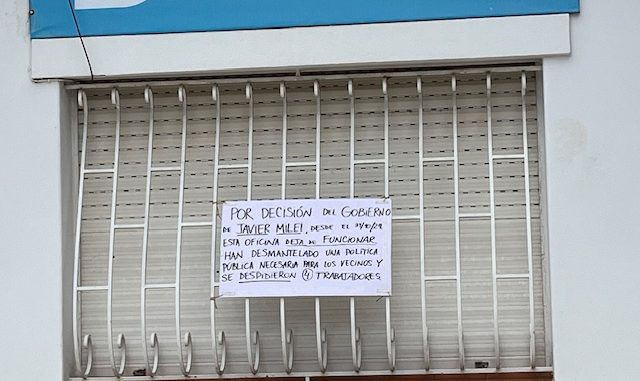 POR DECISIÓN DEL GOBIERNO
DE JAVIER MILEI, DESDE EL
ESTA OFICINA DEJA DE FUNCIONAR
HAN DESMANTELADO UNA POLÍTICA
PÚBLICA NECESARIA PARA LOS VECINOS Y
SE DESPIDIERON 4 TRABAJADORES